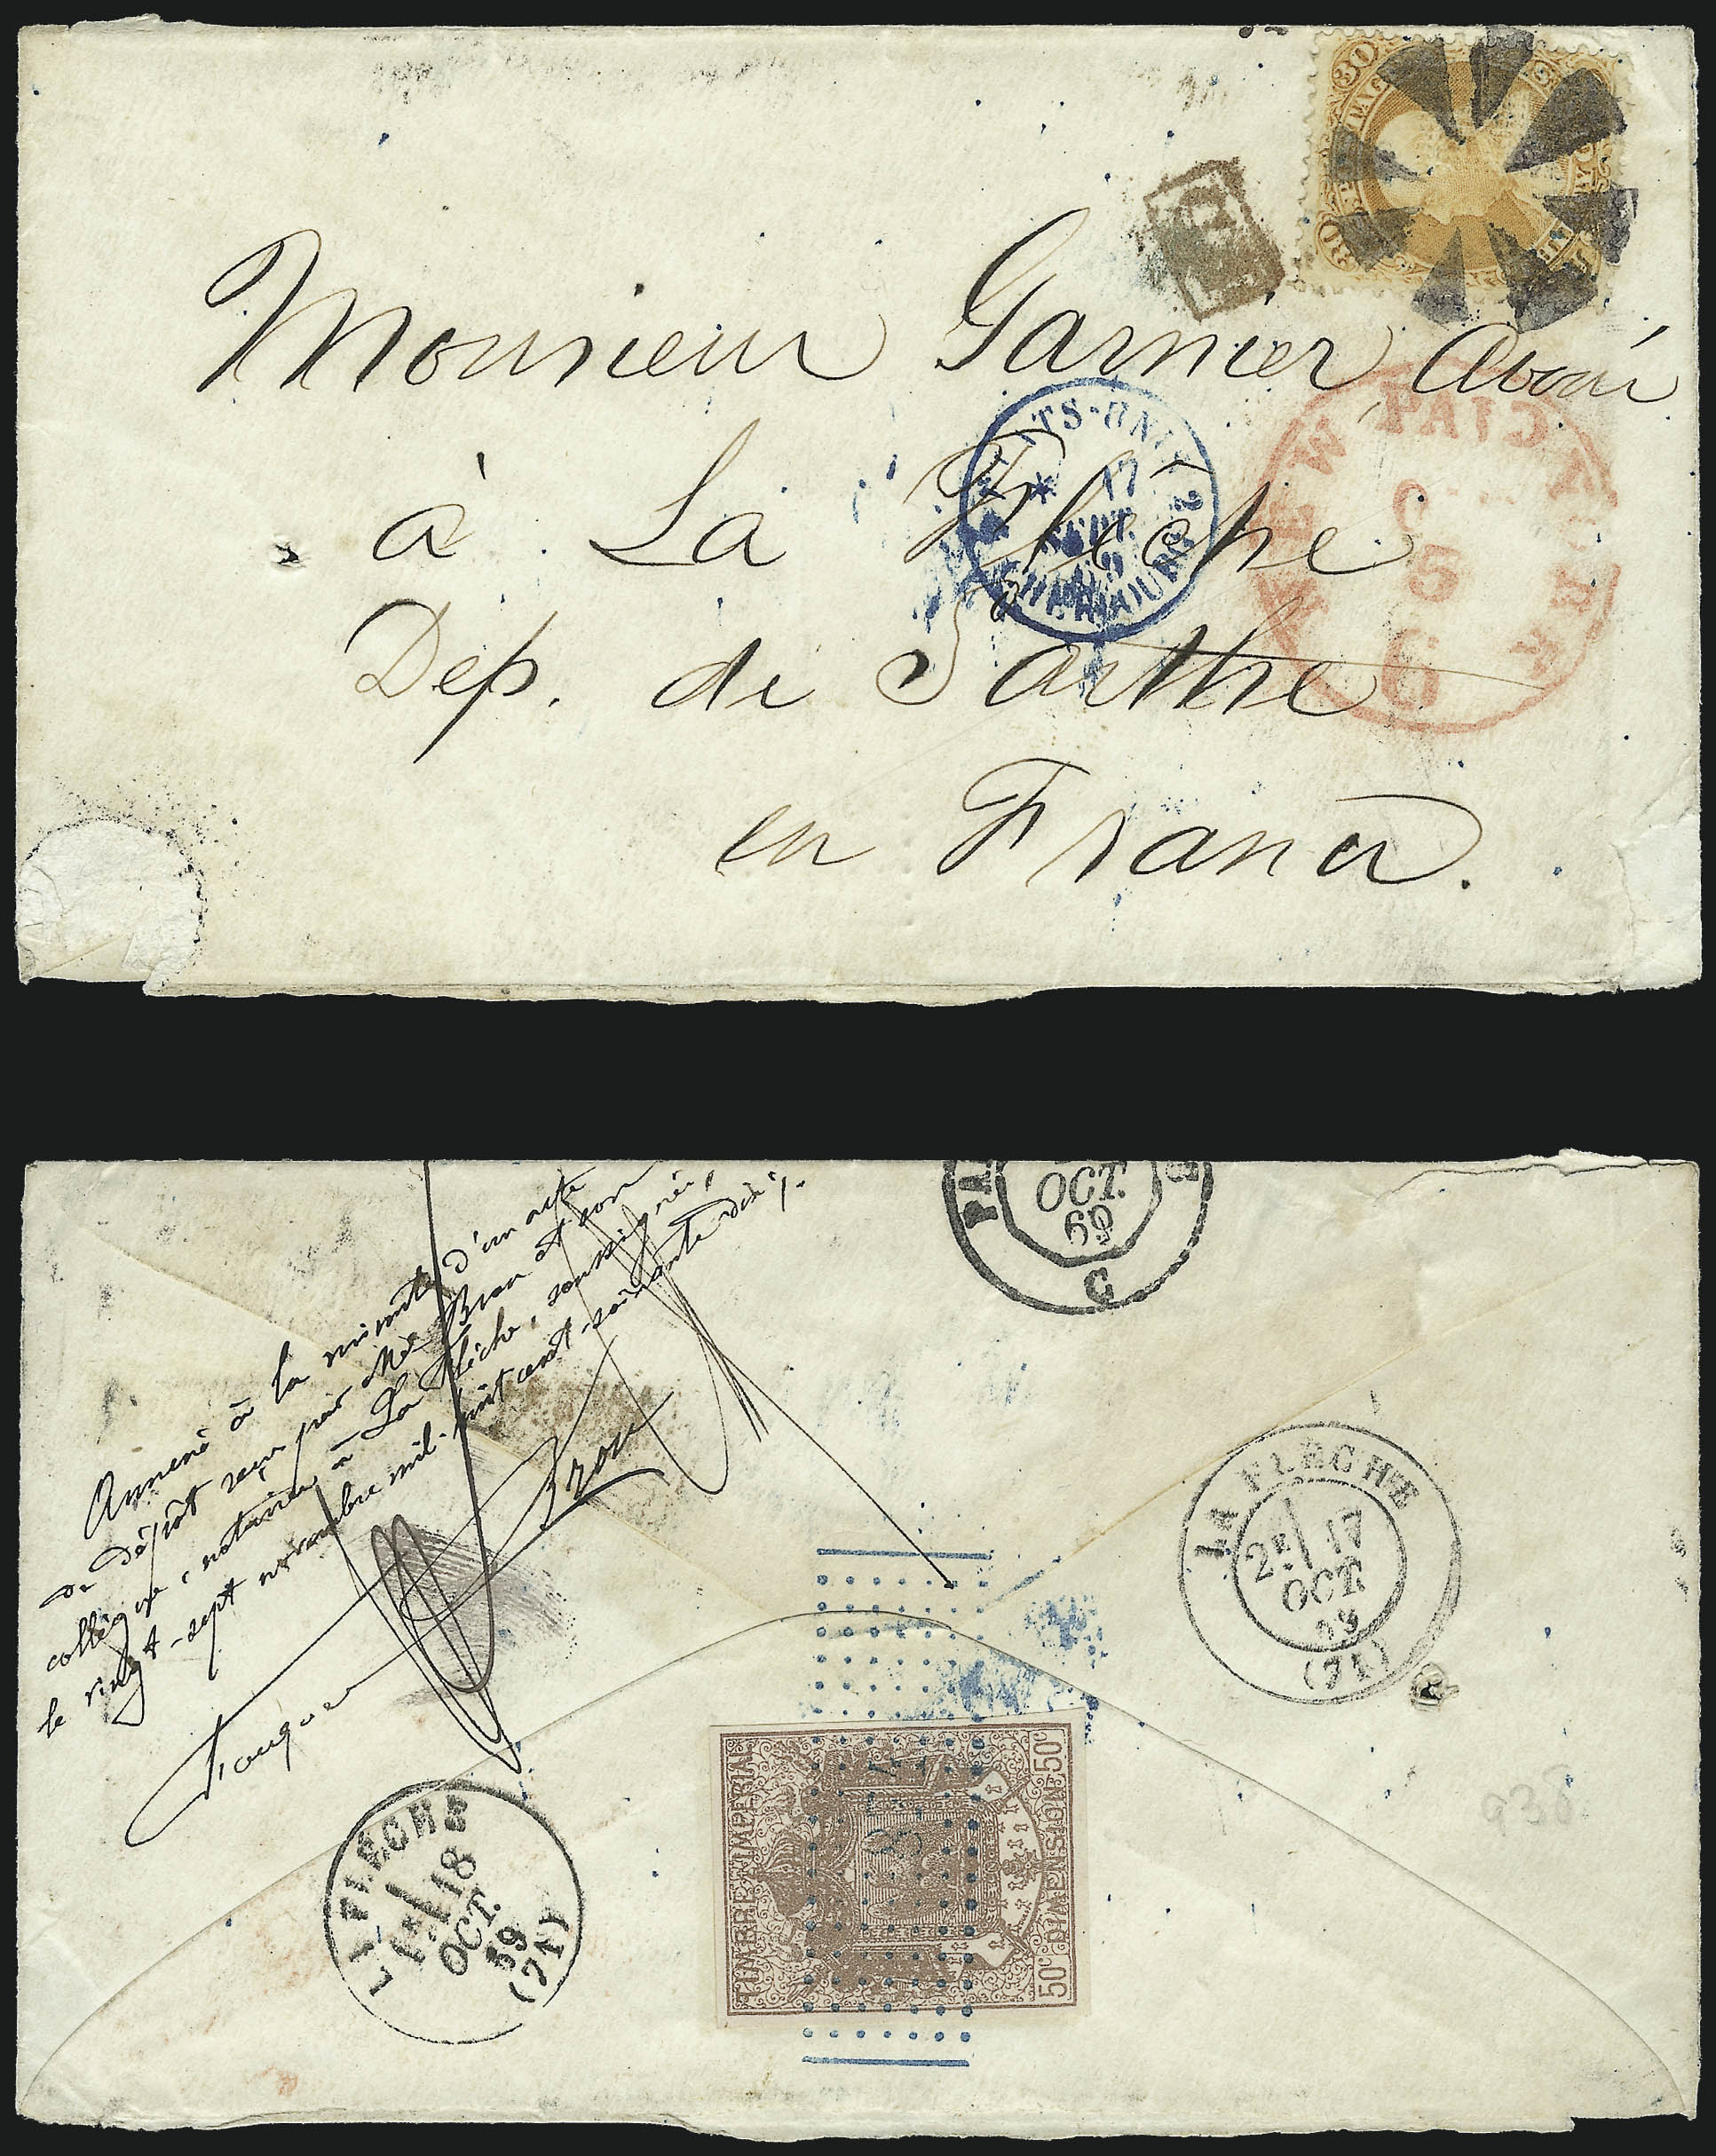 30
30
PD
Monsieur Garnier, Avoué
à La Flèche
Dep. de Sarthe
en France.
ETATS-UNIS
2 CHERBOURG 2
17
NEW YORK
PAID
5
6
OCT.
69
C
Annexé à la minute d'un acte
de dépôt reçu par Me Brou et son
collègue, notaires à La Flèche, soussignés,
le vingt-sept novembre mil-huit cent-soixante dix /.
Brou
Fouquer
LA FLÈCHE
2E 17
OCT.
69
(71)
LA FLÈCHE
1E 18
OCT.
69
(71)
TIMBRE IMPERIAL
50c DIMENSION 50c
936